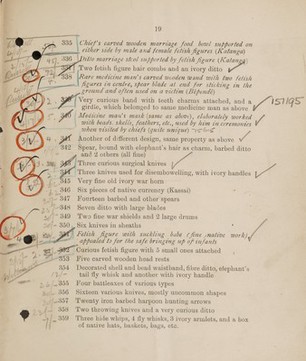 19
335 Chief's carved wooden marriage food bowl supported on
either side by male and female fetish figures (Katanga)
336 Ditto marriage stool supported by fetish figure (Katanga)
337 Two fetish figure hair combs and an ivory ditto
338 Rare medicine man's carved wooden wand with two fetish
figures in centre, spear blade at end for sticking in the
ground and often used on a victim (Bapindi)
339 Very curious band with teeth charms attached, and a
girdle, which belonged to same medicine man as above
151195
340 Medicine man's mask (same as above), elaborately worked
with beads, shells, feathers, etc., used by him in ceremonies
when visited by chiefs (quite unique)
341 Another of different design, same property as above
342 Spear, bound with elephant's hair as charm, barbed ditto
and 2 others (all fine)
343 Three curious surgical knives
344 Three knives used for disembowelling, with ivory handles
345 Very fine old ivory war horn
346 Six pieces of native currency (Kassai)
347 Fourteen barbed and other spears
348 Seven ditto with large blades
349 Two fine war shields and 2 large drums
350 Six knives in sheaths
351 Fetish figure with suckling babe (fine native work)
appealed to for the safe bringing up of infants
352 Curious fetish figure with 5 small ones attached
353 Five carved wooden head rests
354 Decorated shell and bead waistband, fibre ditto, elephant's
tail fly whisk and another with ivory handle
355 Four battleaxes of various types
356 Sixteen various knives, mostly uncommon shapes
357 Twenty iron barbed harpoon hunting arrows
358 Two throwing knives and a very curious ditto
359 Three hide whips, 4 fly whisks, 3 ivory amulets, and a box
of native hats, baskets, bags, etc.